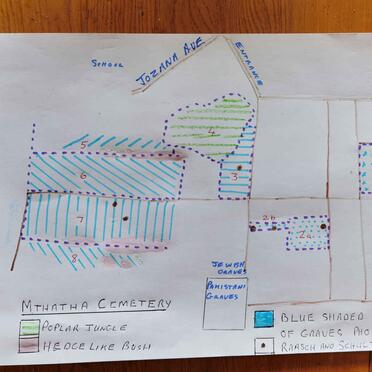 SCHOOL
JOZANA AVE
ENTRANCE
4
5
3
6
7
2B
2A
8
JEWISH
GRAVES
PAKISTANI
GRAVES
MTHATHA CEMETERY
POPLAR JUNGLE
HEDGE LIKE BUSH
BLUE SHADED
OF GRAVES PHO
RAASCH AND SCHULT